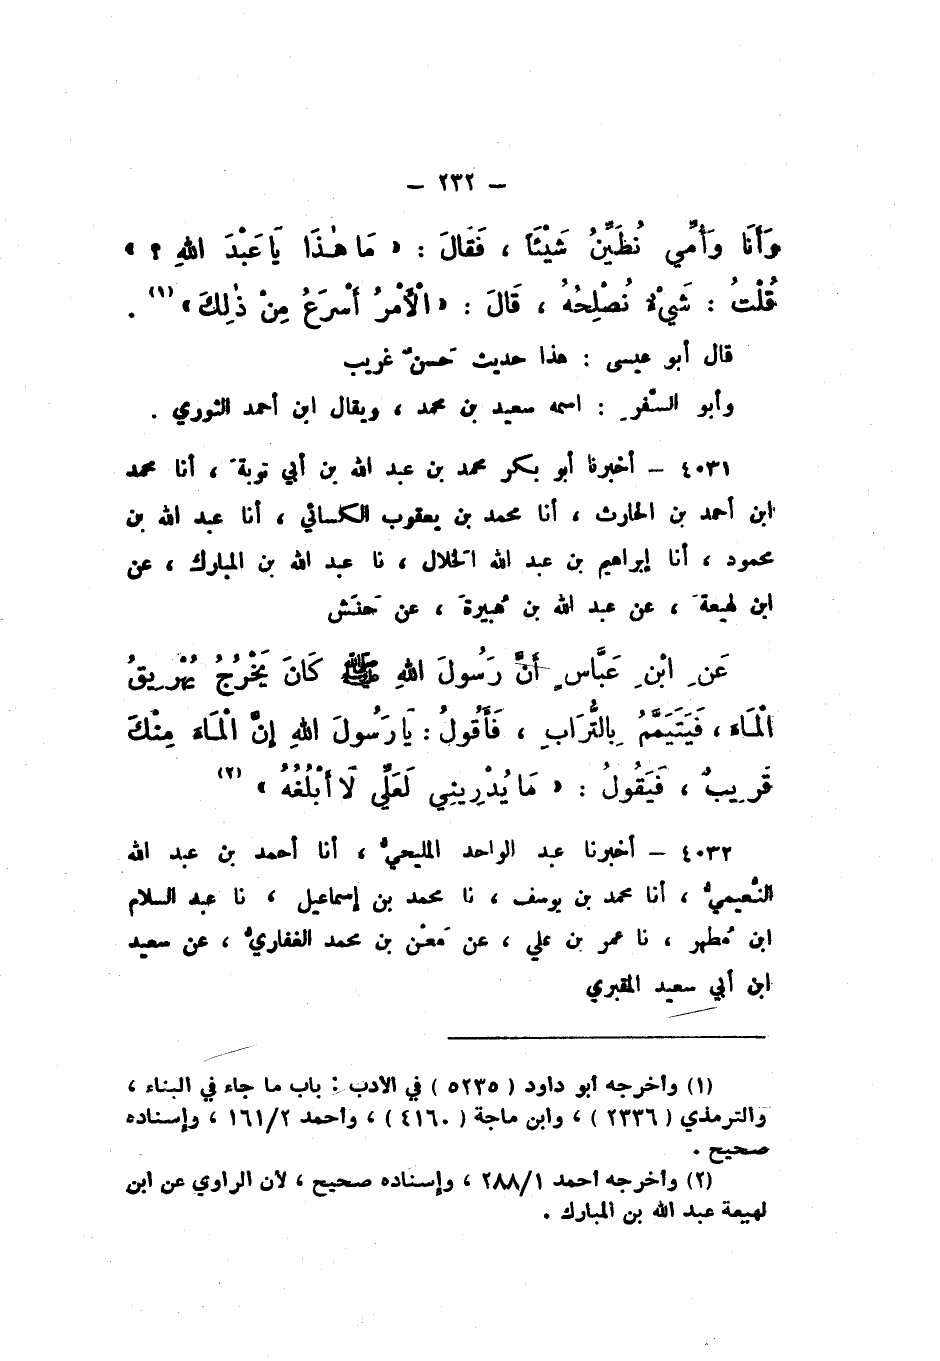 – ٢٣٢ –
وَأَنَا وَأُمِّي نُطَيِّنُ شَيْئَاً ، فَقَالَ : « مَا هٰذَا يَا عَبْدَ اللهِ ؟ »
قُلْتُ : شَيْءٌ نُصْلِحُهُ ، قَالَ : « الْأَمْرُ أَسْرَعُ مِنْ ذٰلِكَ » (١) .
قال أبو عيسى : هذا حديث حسنٌ غريب
وأبو السَّفَرِ : اسمه سعيد بن محمد ، ويقال ابن أحمد الثوري .
٤٠٣١ – أخبرنا أبو بكر محمد بن عبد الله بن أبي توبةَ ، أنا محمد
ابن أحمد بن الحارث ، أنا محمد بن يعقوب الكسائي ، أنا عبد الله بن
محمود ، أنا إبراهيم بن عبد الله الخَلال ، نا عبد الله بن المبارك ، عن
ابن لهيعةَ ، عن عبد الله بن هُبيرةَ ، عن حَنَش
عَنِ ابْنِ عَبَّاسٍ أَنَّ رَسُولَ اللهِ ﷺ كَانَ يَخْرُجُ يُهْرِيقُ
الْمَاءَ ، فَيَتَيَمَّمُ بِالتُّرَابِ ، فَأَقُولُ : يَا رَسُولَ اللهِ إِنَّ الْمَاءَ مِنْكَ
قَرِيبٌ ، فَيَقُولُ : « مَا يُدْرِينِي لَعَلِّي لَا أَبْلُغُهُ » (٢)
٤٠٣٢ – أخبرنا عبد الواحد المليحيُّ ، أنا أحمد بن عبد الله
النُّعيميُّ ، أنا محمد بن يوسف ، نا محمد بن إسماعيل ، نا عبد السلام
ابن مُطهر ، نا عمر بن علي ، عن مَعْن بن محمد الغفاريُّ ، عن سعيد
ابن أبي سعيد المقبري
(١) وأخرجه أبو داود ( ٥٢٣٥ ) في الأدب : باب ما جاء في البناء ،
والترمذي ( ٢٣٣٦ ) ، وابن ماجة ( ٤١٦٠ ) ، وأحمد ١٦١/٢ ، وإسناده
صحيح .
(٢) وأخرجه أحمد ٢٨٨/١ ، وإسناده صحيح ، لأن الراوي عن ابن
لهيعة عبد الله بن المبارك .